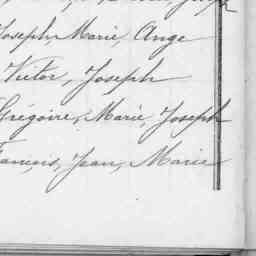 Joseph, Marie, Ange
Victor, Joseph
Grégoire, Marie, Joseph
François, Jean, Marie